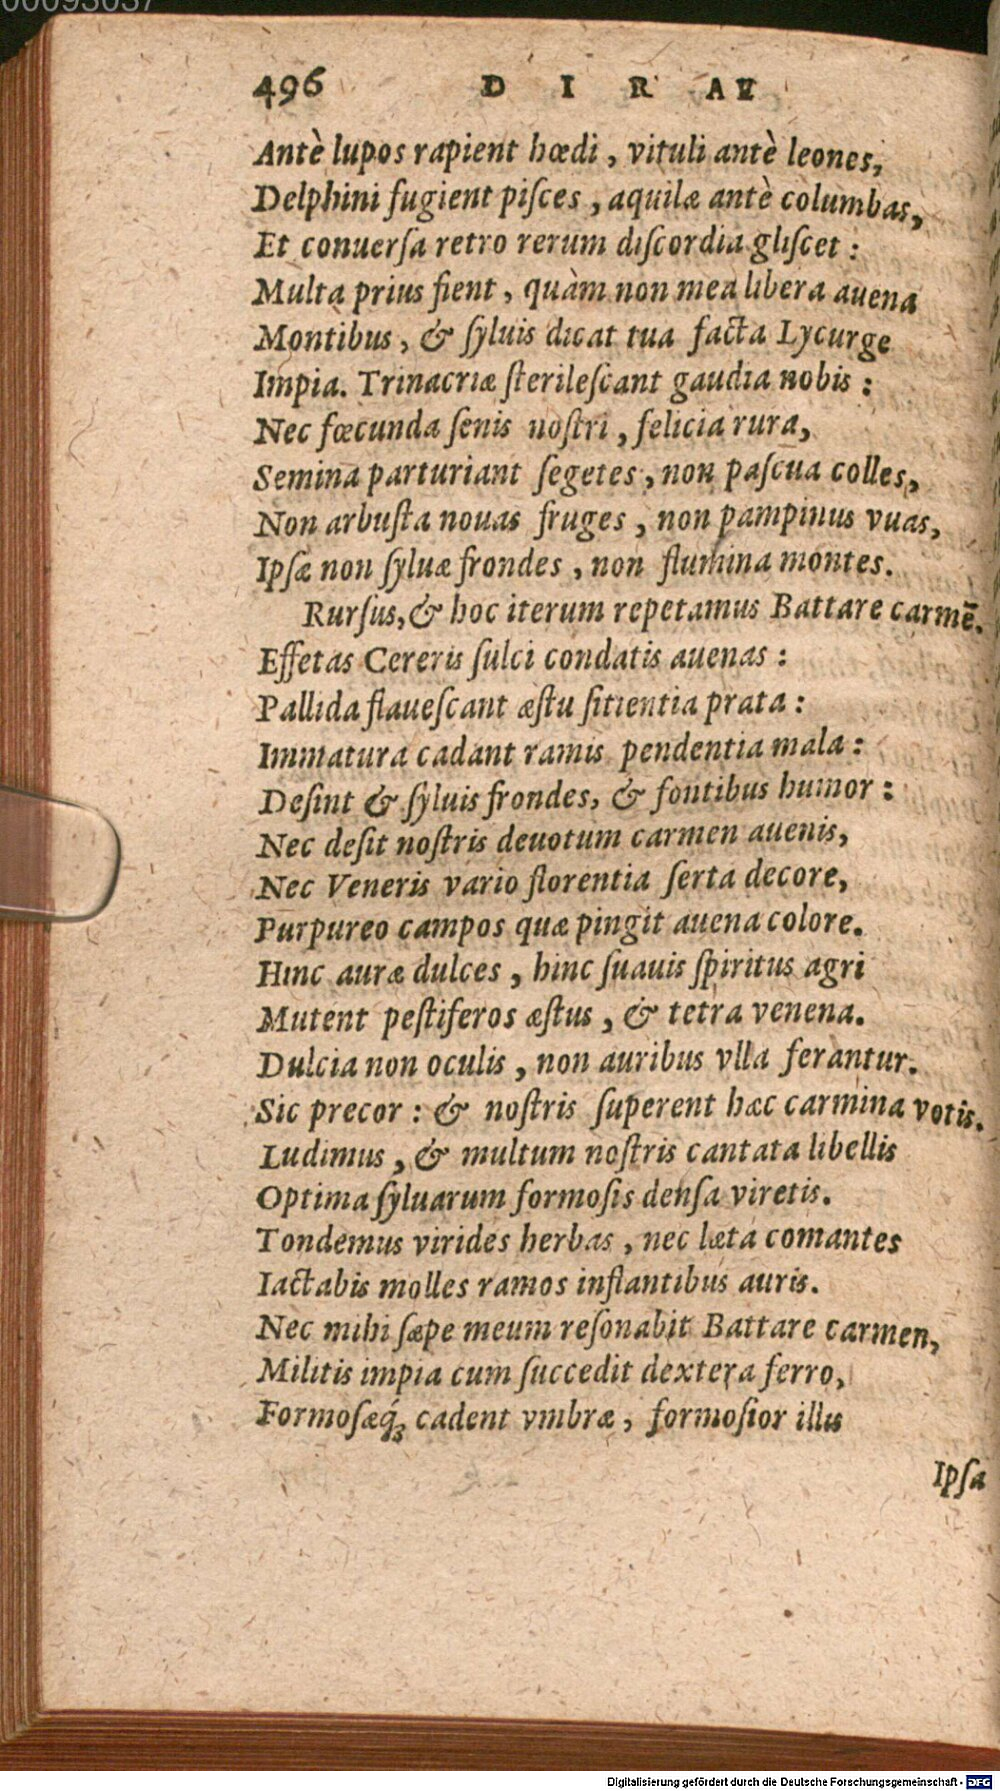 00093037
496 DIR AE
Antè lupos rapient hœdi, vituli antè leones,
Delphini fugient piſces, aquilæ antè columbas,
Et conuerſa retro rerum diſcordia gliſcet:
Multa prius fient, quàm non mea libera auena
Montibus, & ſyluis dicat tua facta Lycurge
Impia. Trinacriæ ſterileſcant gaudia nobis:
Nec fœcunda ſenis noſtri, felicia rura,
Semina parturiant ſegetes, non paſcua colles,
Non arbuſta nouas fruges, non pampinus vuas,
Ipſæ non ſyluæ frondes, non flumina montes.
Rurſus, & hoc iterum repetamus Battare carmē.
Effetas Cereris ſulci condatis auenas:
Pallida flaueſcant æſtu ſitientia prata:
Immatura cadant ramis pendentia mala:
Deſint & ſyluis frondes, & fontibus humor:
Nec deſit noſtris deuotum carmen auenis,
Nec Veneris vario florentia ſerta decore,
Purpureo campos quæ pingit auena colore.
Hinc auræ dulces, hinc ſuauis ſpiritus agri
Mutent peſtiferos æſtus, & tetra venena.
Dulcia non oculis, non auribus vlla ferantur.
Sic precor: & noſtris ſuperent hæc carmina votis.
Ludimus, & multum noſtris cantata libellis
Optima ſyluarum formoſis denſa viretis.
Tondemus virides herbas, nec læta comantes
Iactabis molles ramos inflantibus auris.
Nec mihi ſæpe meum reſonabit Battare carmen,
Militis impia cum ſuccedit dextera ferro,
Formoſæq́; cadent vmbræ, formoſior illis
Ipſa
Digitalisierung gefördert durch die Deutsche Forschungsgemeinschaft - DFG